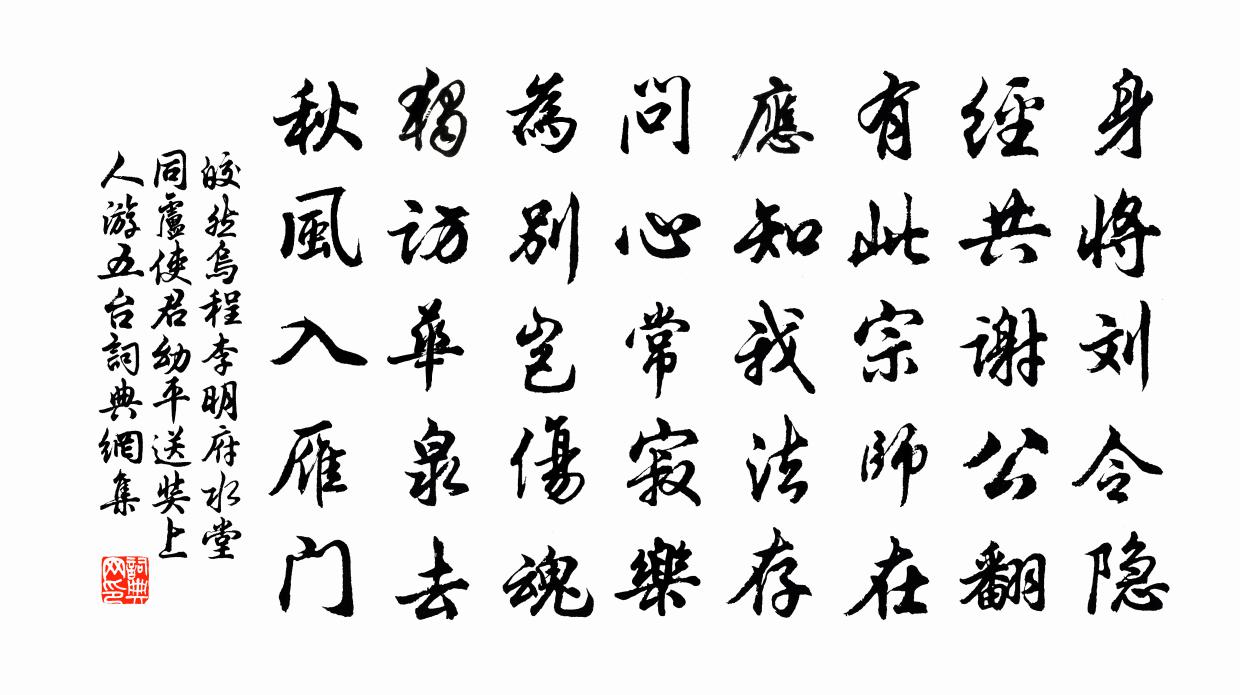 身將刘令隐
經共謝公翻
有此宗師在
應知我法存
問心常寂樂
為別豈傷魂
獨訪華泉去
秋風入雁门
皎然烏程李明府水堂
同盧使君幼平送奘上
人游五台詞典網集
詞典
网